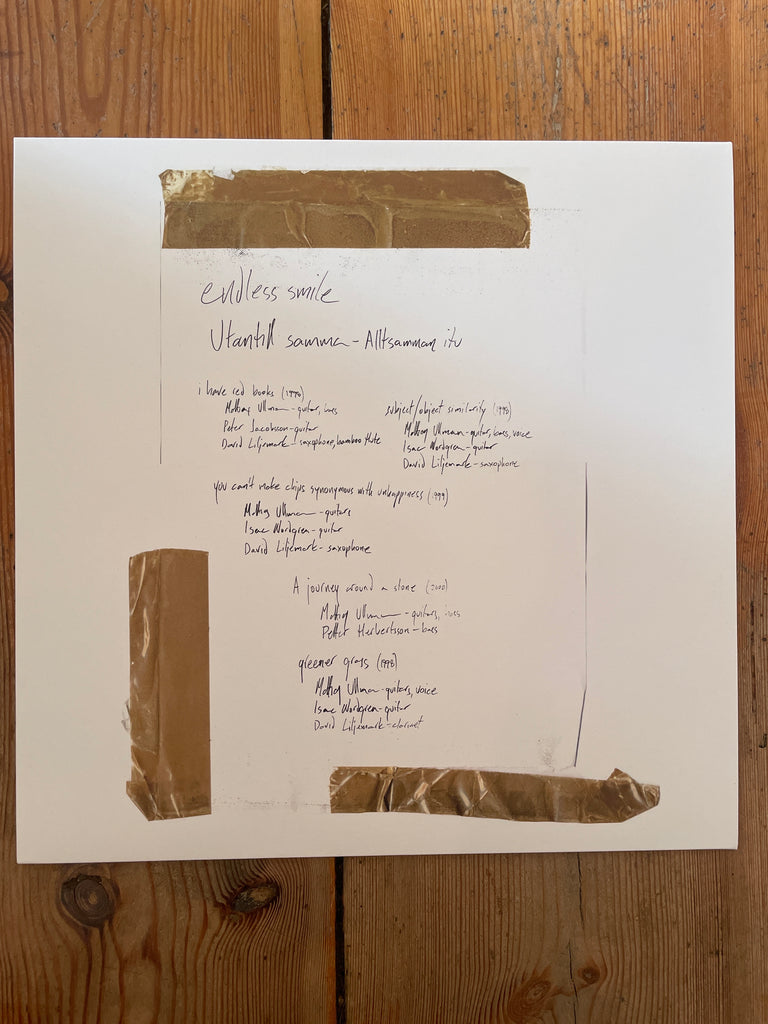 endless smile
Utantill samma - Alltsamman itu
i have red books (1998)
Mattias Ullman - guitar, bass
Peter Jacobsson - guitar
David Liljemark - saxophone, bamboo flute
subject/object similarity (1998)
Mattias Ullman - guitar, bass, voice
Isac Nordgren - guitar
David Liljemark - saxophone
you can't make chips synonymous with unhappiness (1999)
Mattias Ullman - guitars
Isac Nordgren - guitar
David Liljemark - saxophone
A journey around a stone (2000)
Mattias Ullman - guitars, bass
Petter Herbertsson - bass
greener grass (1998)
Mattias Ullman - guitars, voice
Isac Nordgren - guitar
David Liljemark - clarinet